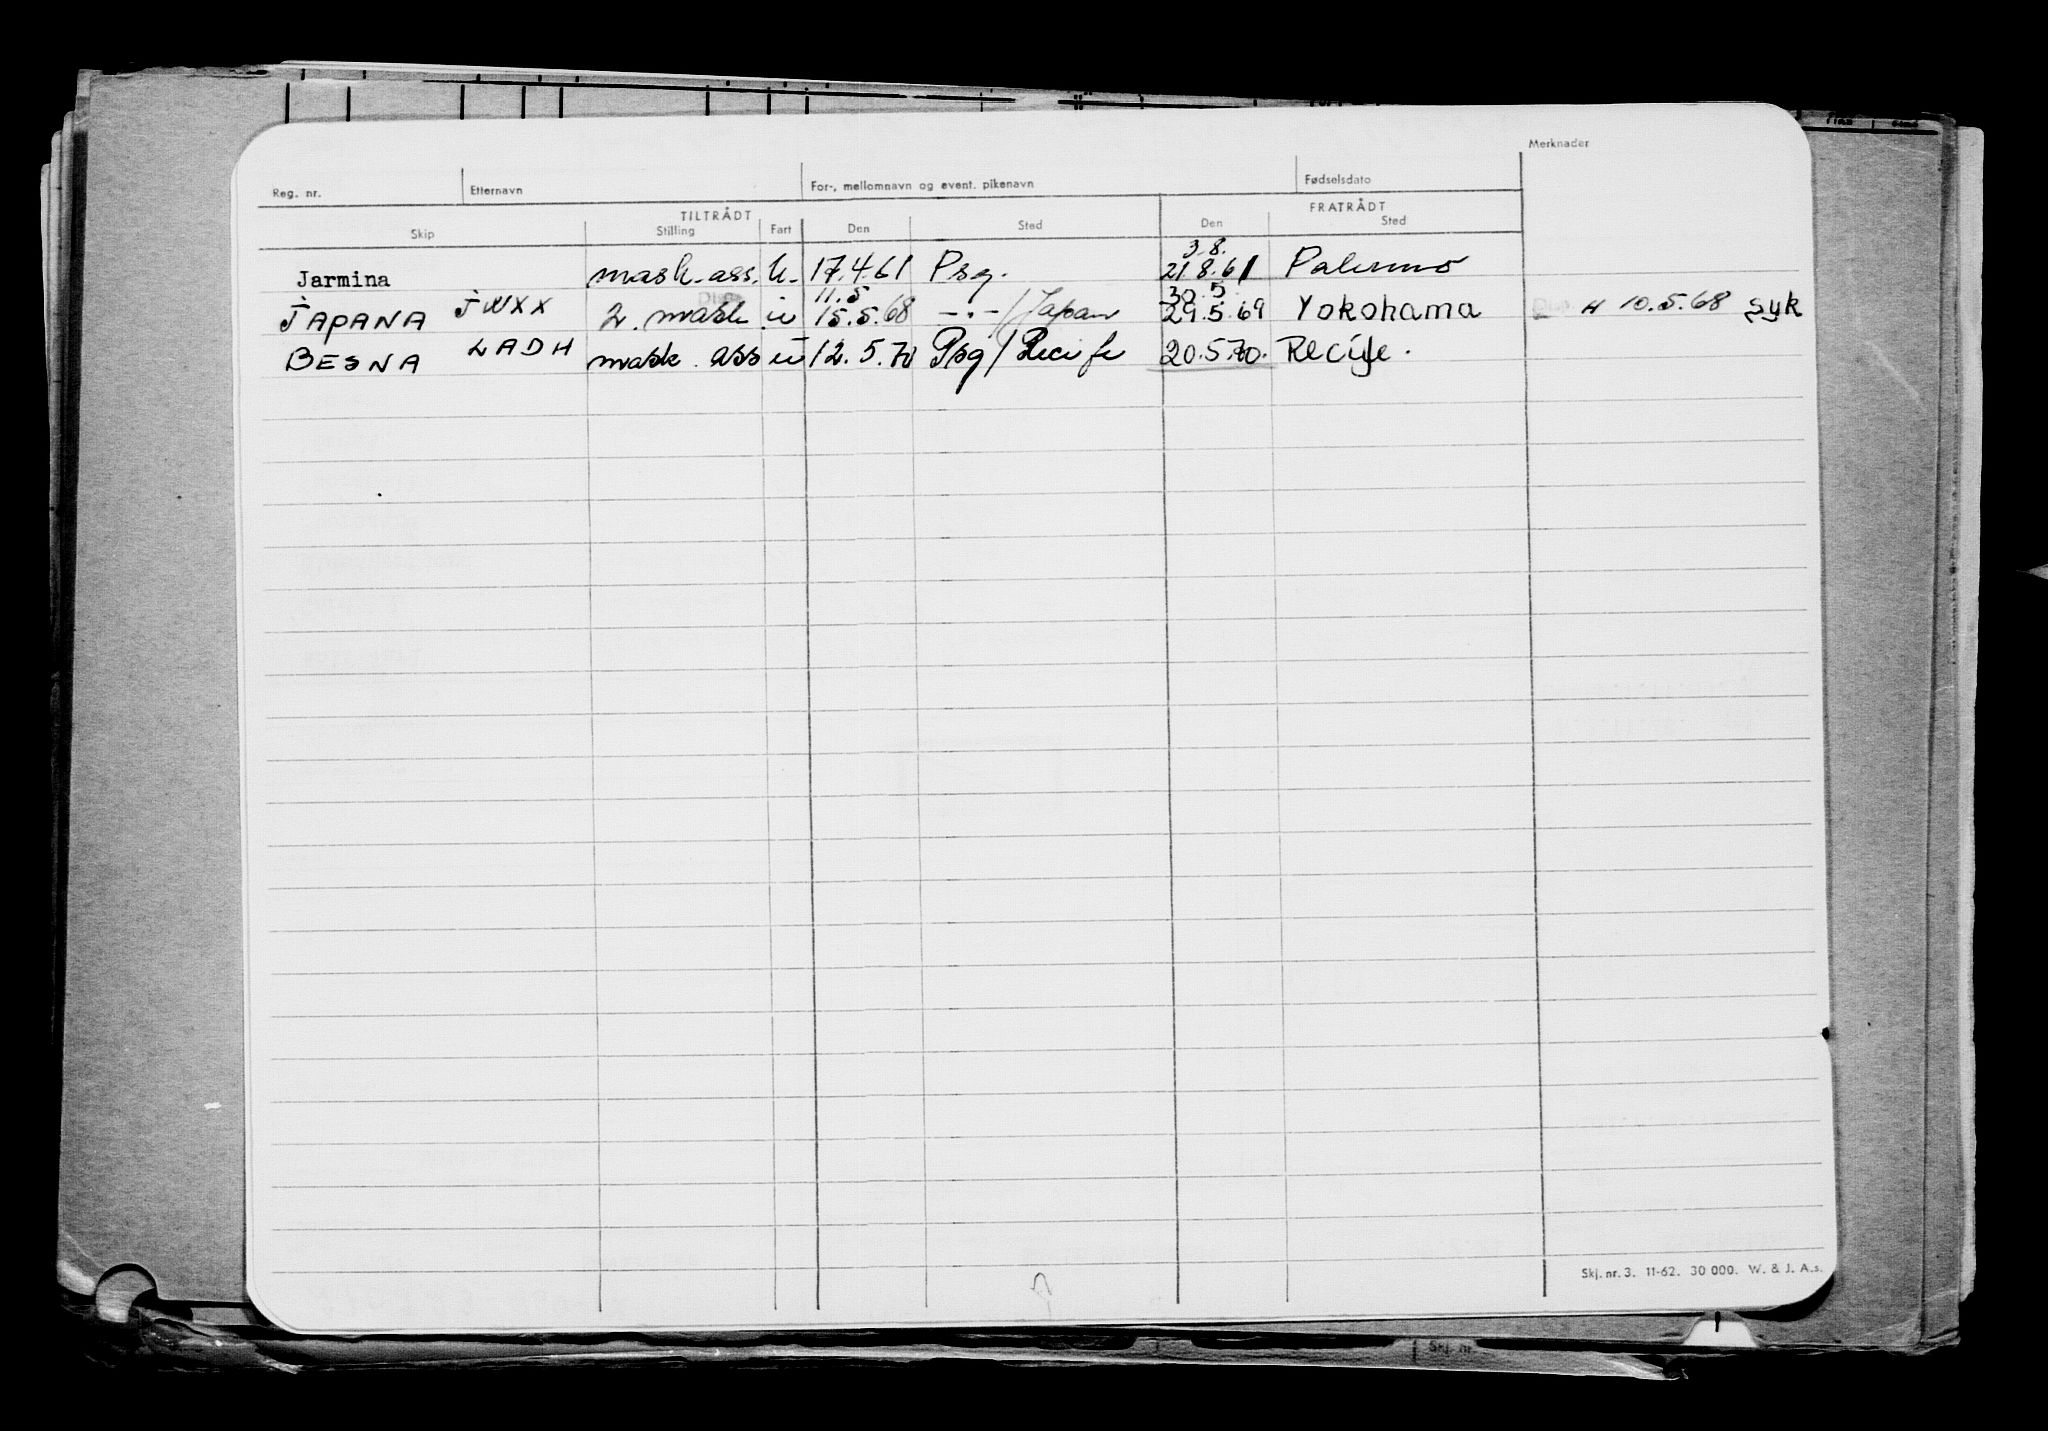 Merknader
Reg. nr. Etternavn For-, mellomnavn og event. pikenavn Fødselsdato
TILTRÅDT FRATRÅDT
Skip Stilling Fart Den Sted Den Sted
3.8.
Jarmina mask. ass. u. 17.4.61 Psg. 21.8.61 Palermo
Disp. 11.5 30.5.
JAPANA JWXX 2. mask u 15.5.68 -"-/Japan 29.5.69 Yokohama H 10.5.68 syk
BESNA LADH mask. ass u 12.5.70 Psg/Recife 20.5.70. Recife.
Skj. nr. 3. 11-62. 30 000. W. & J. A.s.
Skj. nr